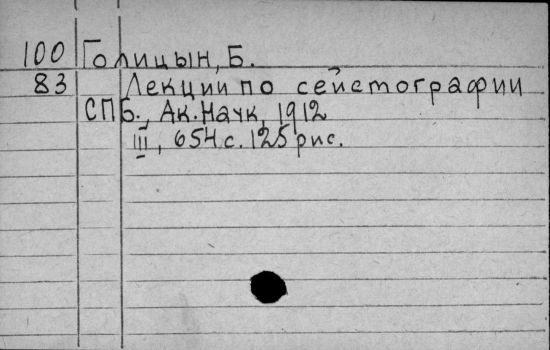 100 Голицын, Б.
83 Лекции по сейстографии
СПБ., Ак. Наук, 1912
III, 654 с. 125 рис.